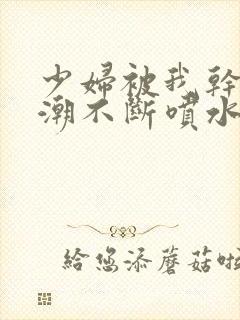 少婦被我幹
潮不斷噴水
給您添蘑菇啦